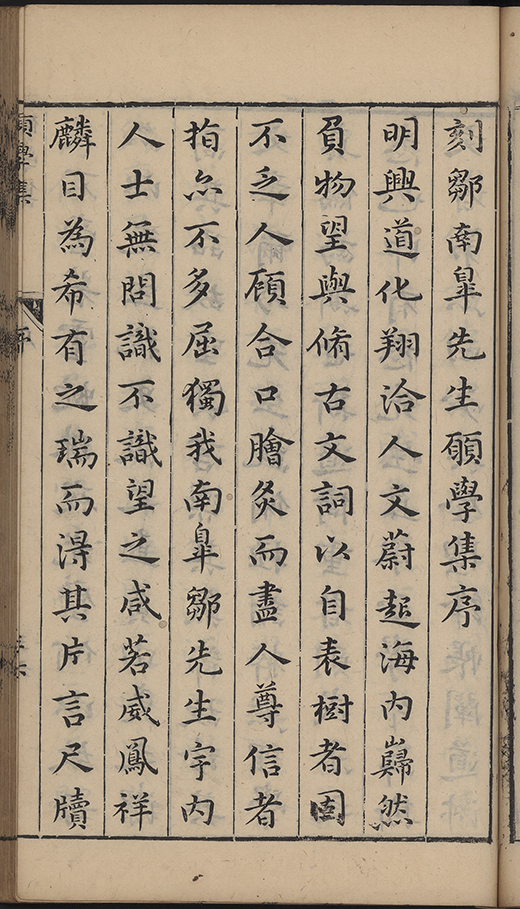 刻鄒南臯先生願學集序
明興道化翔洽人文蔚起海内巋然
負物望與脩古文詞以自表樹者固
不乏人顧合口膾炙而盡人尊信者
指亦不多屈獨我南臯鄒先生宇内
人士無問識不識望之咸若威鳳祥
麟目為希有之瑞而淂其片言尺牘
願學集
序